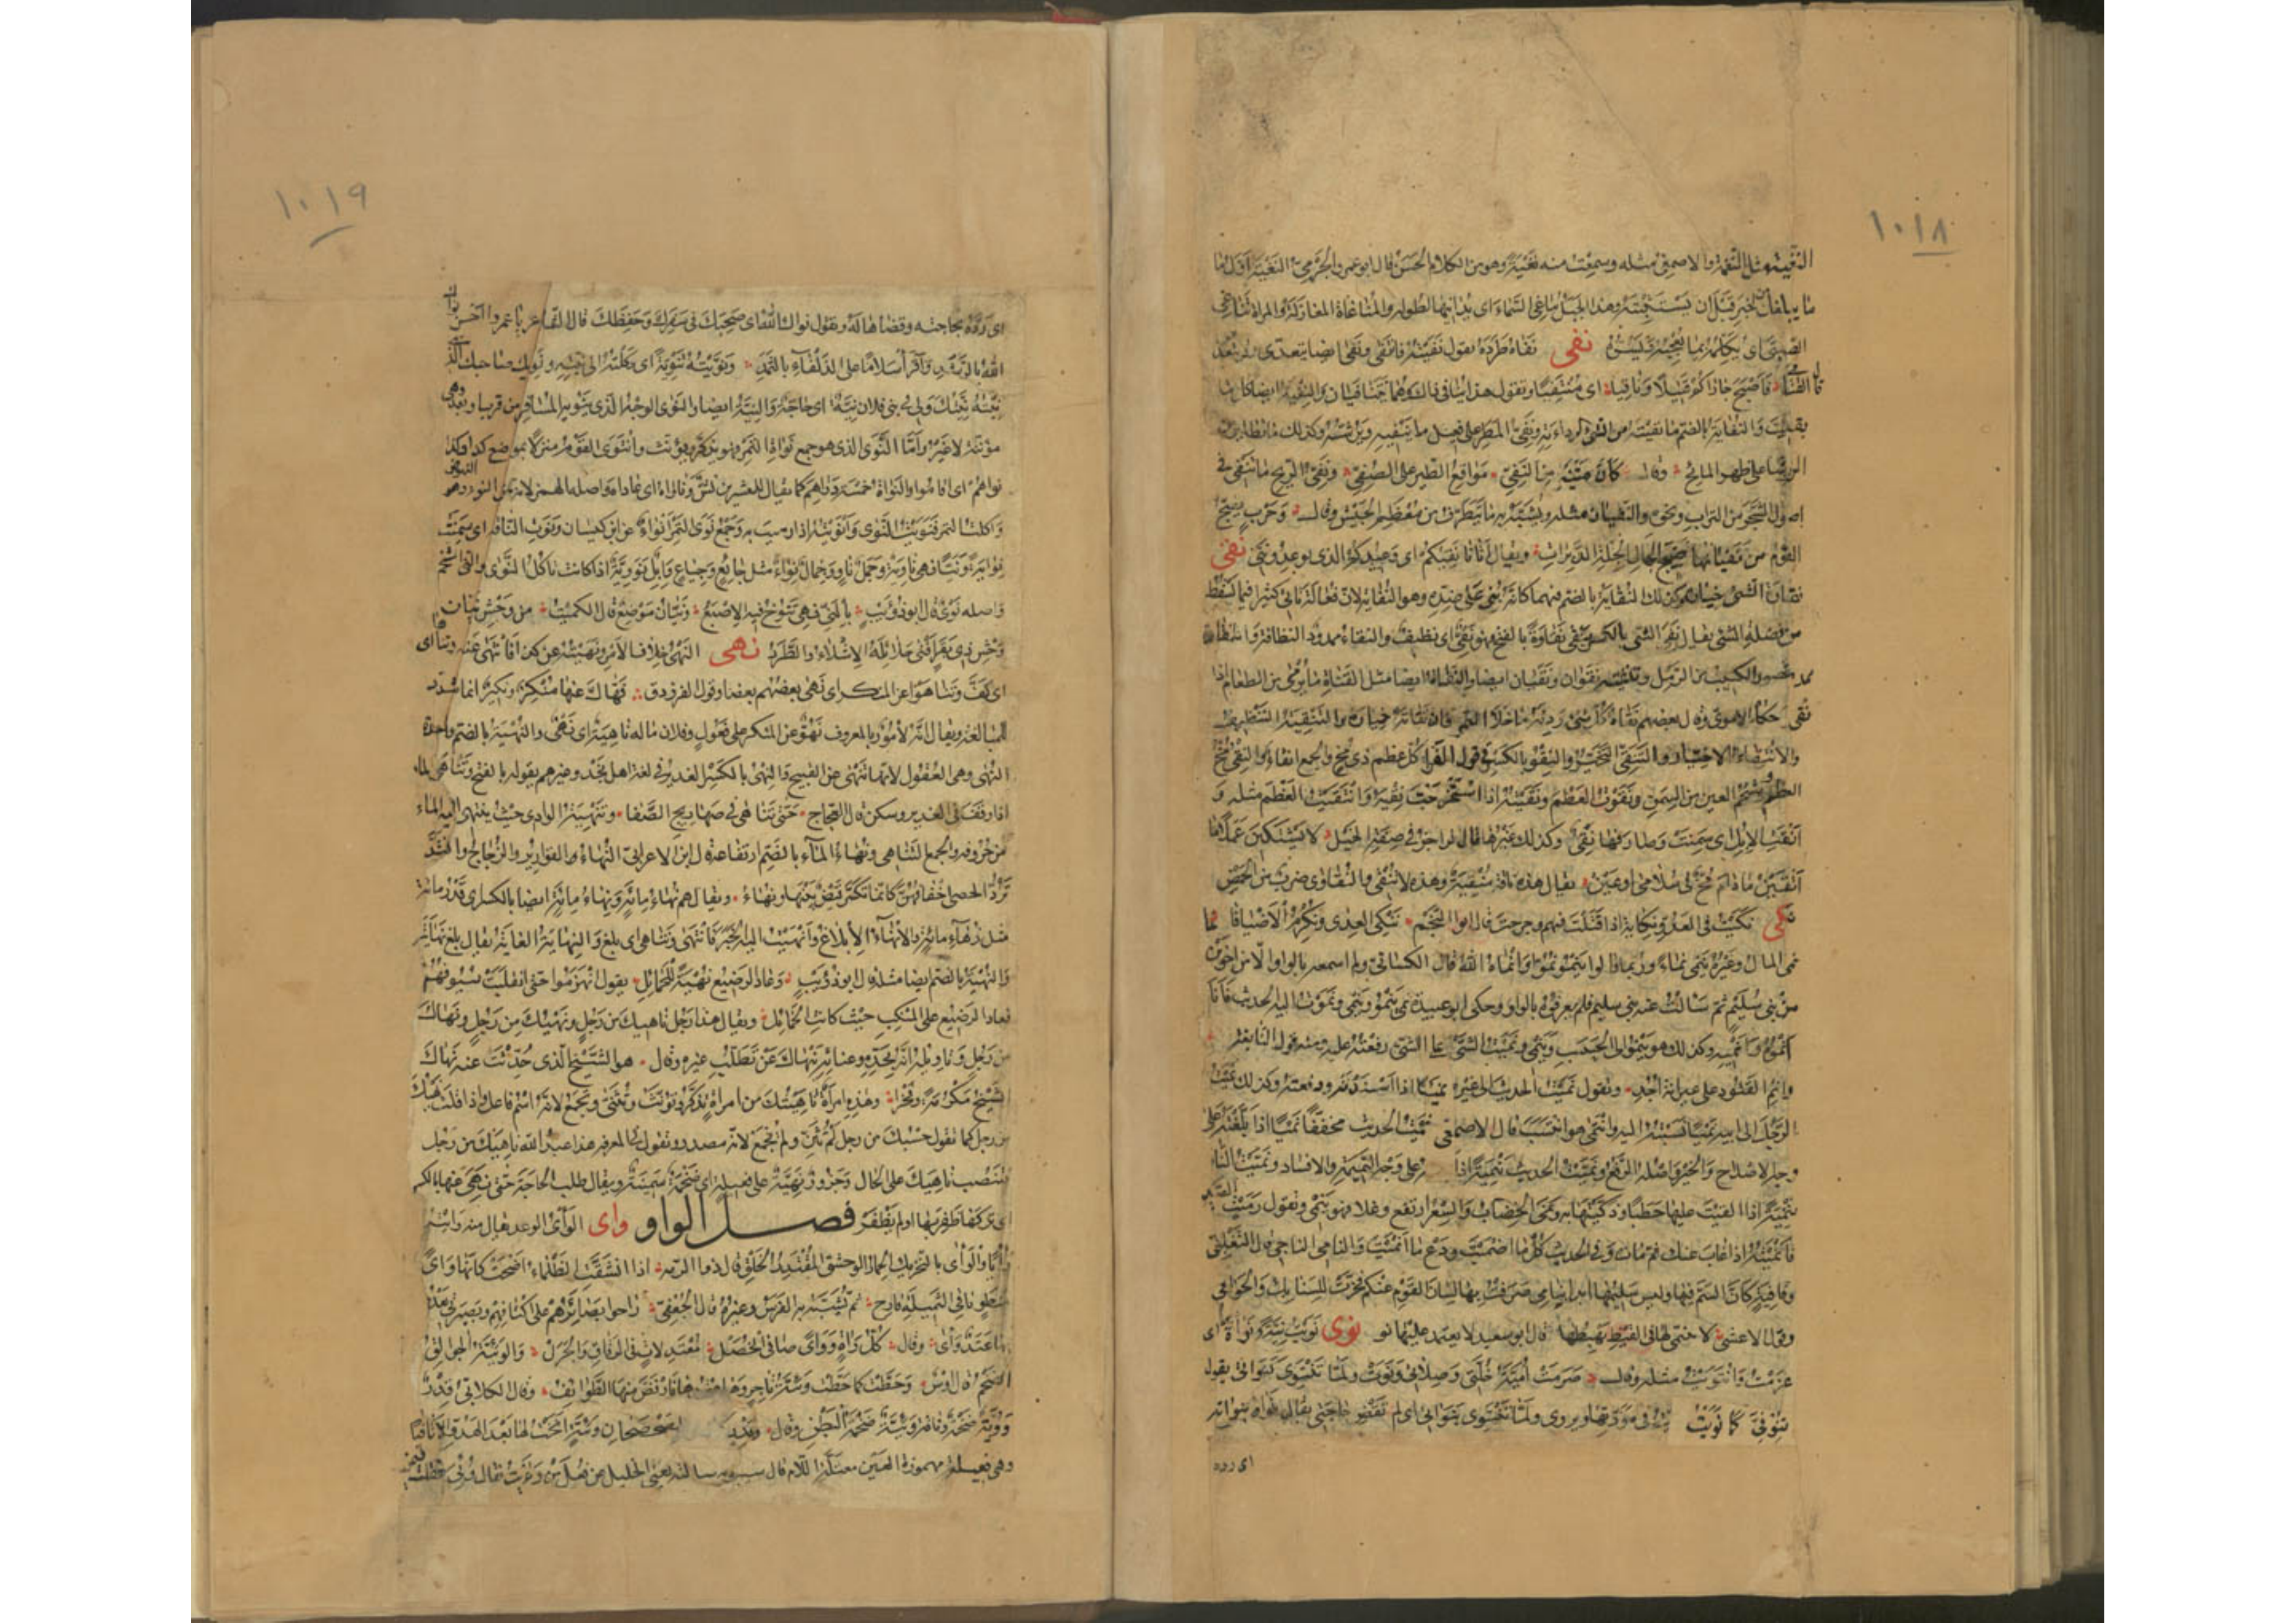 ١٠١٨
النغية مثل النغمة والاصمعي مثله وسمعت منه نغية وهو من الكلام الحسن قال ابو عمر والجرمي النغية اول ما
ما يبلغك من الخبر قبل ان تستبينه وهذا الجبل يناغي السماء اي يدانيها لطوله والمناغاة المغازلة والمراة تناغي
الصبي اي يكلمه بما يعجبه ويسره نفى نفاه طرده تقول نفيته فانتفى ونفى ايضا يتعدى ولا يتعدى
قال القطامي فاصبح جاراكم قتيلا ونافيا اي منتفيا وتقول هذا ينافي ذلك وهما يتنافيان والنفية ايضا كل ما
نفيت والنفاية بالضم ما نفيته من الشيء لرداءته ونفي المطر على فعيل ما ينفيه ويرشه وكذلك ما تطاير من
الرشا على ظهر الماتح وقال كأن متنيه من النفي مواقع الطير على الصفي ونفي الريح ما تنفى في
اصول الشجر من التراب ونحوه والنفيان مثله ويشبه به ما يتطرف من معظم الجيش وقال وحرب يضج
القوم من نفيانها ضجيج الجمال الجلة الدبرات ويقال اتانا نفيكم اي وعيدكم الذي توعدوننى نقى
نقاوة الشيء خياره وكذلك النقاية بالضم فيهما كانه بني على ضده وهو النفاية لان فعالة تاتي كثيرا فيما يسقط
من فضلة الشيء يقال نقي الشيء بالكسر ينقى نقاوة بالفتح فهو نقي اي نظيف والنقاء ممدود النظافة والنقا
مقصور الكثيب من الرمل وتثنيته نقوان ونقيان ايضا والنقاة ايضا مثل القناة ما يرمى من الطعام اذا
نقي حكاه الاموي وقال بعضهم نقاة كل شيء رديئه ما خلا التمر فان نقاته خياره والتنقية التنظيف
والانتقاء الاختيار والتنقي التخير والنقو بالكسر في قول الفراء كل عظم ذي مخ والجمع انقاء والنقي مخ
العظم وشحم العين من السمن ونقوت العظم ونقيته اذا استخرجت نقيه وانتقيت العظم مثله و
انقت الابل اي سمنت وصار فيها نقي وكذلك غيرها قال الراجز في صفة الخيل لا يشتكين عملا ما
انقين ما دام مخ في سلامى او عين يقال هذه ناقة منقية وهذه لا تنقي والنقاوى ضرب من الحمض
نكى نكيت في العدو نكاية اذا قتلت فيهم وجرحت قال ابو النجم ننكي العدى ونكرم الاضيافا نما
نمى المال وغيره ينمي نماء وربما قالوا ينمو نموا وانماه الله قال الكسائي ولم اسمعه بالواو الا من اخوين
من بني سليم ثم سالت عنه بني سليم فلم يعرفوه بالواو وحكى ابو عبيدة نمى ينمو وينمي ونموت اليه الحديث فانا
انموه وانميه وكذلك هو ينمو الى الحسب وينمي ونميت الشيء على الشيء رفعته عليه ومنه قول النابغة
وانم القتود على عيرانة اجد وتقول نميت الحديث الى غيري نميا اذا اسندته ورفعته وكذلك نميت
الرجل الى ابيه نميا نسبته اليه وانتمى هو انتسب قال الاصمعي نميت الحديث مخففا نميا اذا بلغته على
وجه الاصلاح والخير واصله الرفع ونميت الحديث تنمية اذا على وجه النميمة والافساد ونميت النار
تنمية اذا القيت عليها حطبا وذكيتها به ونمى الخضاب والسعر ارتفع وغلا فهو ينمي وتقول رميت الصيد
فانميته اذا غاب عنك ثم مات وفي الحديث كل ما اصميت ودع ما انميت والنامي الناجي قال التغلبي
وقافية كان السم فيها وليس سليمها ابدا بنامي صرفت بها لسان القوم عنكم فخرت للسنابك والحوامي
وقول الاعشى لا يتنمى لها في القيظ يهبطها قال ابو سعيد لا يعتمد عليها نوى نويت نية ونواة اي
عزمت وانتويت مثله وقال صرمت اميمة خلتي وصلاتي ونوت ولما تنتوي كنواتي يقول
تنو في كما نويت في مودتها ويروى ولما تنتوي بنواتي اي لم تقض حاجتي يقال نواه بنواته
اي رده
١٠١٩
اي رده بحاجته وقضاها له وتقول نواك الله اي صحبك في سفرك وحفظك قال الفراء يا عمرو احسن نواك
الله بالرشد واقرا سلاما على الذلفاء بالثمد ونويته تنوية اي وكلته الى نيته ونويك صاحبك الذي
نيته نيتك ولي في بني فلان نية اي حاجة والنية ايضا والنوى الوجه الذي ينويه المسافر من قرب او بعد وهي
مؤنثة لا غير واما النوى الذي هو جمع نواة التمر فهو يذكر ويؤنث وانتوى القوم منزلا بموضع كذا وكذا
نواهم اي اقاموا والنواة خمسة دراهم كما يقال للعشرين نش وناواه اي عاداه واصله الهمز لانه من النوء وهو النهوض
واكلت التمر فنويت النوى وانويته اذا رميت به وجمع نوى التمر انواء عن ابن كيسان ونوت الناقة اي سمنت
نواية ونيا فهي ناوية وجمل ناو وجمال نواء مثل جائع وجياع وابل نووية اذا كانت تاكل النوى والني الشحم
واصله نوي قال ابو ذؤيب بالني فهي تثوخ فيه الاصبع ونيان موضع قال الكميت من وحش نيان او
وحش ذي بقر افنى حلائله الاشلاء والطرد نهى النهي خلاف الامر ونهيته عن كذا فانتهى عنه وتناهى اي
اي كف وتناهوا عن المنكر اي نهى بعضهم بعضا وقول الفرزدق فنهاك عنها منكر ونكير انما شدد
للمبالغة ويقال انه لامور بالمعروف نهو عن المنكر على فعول وفلان ما له ناهية اي نهي والنهية بالضم واحدة
النهى وهي العقول لانها تنهى عن القبيح والنهي بالكسر الغدير في لغة اهل نجد وغيرهم يقوله بالفتح وتناهى الماء
اذا وقف في الغدير وسكن قال العجاج حتى تناهى في صهاريج الصفا وتنهية الوادي حيث ينتهي اليه الماء
من حروفه والجمع التناهي ونهاء الماء بالضم ارتفاعه قال ابن الاعرابي النهاء القوارير والزجاج وانشد
ترد الحصى اخفافهن كانما تكسر قيض بينها ونهاء ويقال هم نهاء مائة ونهاء مائة ايضا بالكسر اي قدر مائة
مثل زهاء مائة والانهاء الابلاغ وانهيت اليه الخبر فانتهى وتناهى اي بلغ والنهاية الغاية يقال بلغ نهايته
والنهية بالضم ايضا مثله قال ابو ذؤيب وعاد الرصيع نهية للحمائل يقول انهزموا حتى انقلبت سيوفهم
فعاد الرصيع على المنكب حيث كانت الحمائل ويقال هذا رجل ناهيك من رجل ونهيك من رجل ونهاك
من رجل وتاويله انه بجده وغنائه ينهاك عن تطلب غيره وقال هو الشيخ الذي حدثت عنه نهاك
الشيخ مكرمة وفخرا وهذه امراة ناهيتك من امراة تذكر وتؤنث وتثنى وتجمع لانه اسم فاعل واذا قلت نهيك
من رجل كما تقول حسبك من رجل لم تثن ولم تجمع لانه مصدر وتقول في المعرفة هذا عبد الله ناهيك من رجل
فتنصب ناهيك على الحال وجزور نهية على فعيلة اي ضخمة سمينة ويقال طلب الحاجة حتى نهي عنها بالكسر
اي تركها ظفر بها او لم يظفر فصل الواو واى الواي الوعد يقال منه وايته
وايا والواى بالتحريك الحمار الوحشي المقتدر الخلق قال ذو الرمة اذا انشقت الظلماء اضحت كانها واى
منطو باقي الثميلة قارح ثم تشبه به الفرس وغيره قال الجعفي راحوا بصائرهم على اكتافهم وبصيرتي يعدو
بها عتد واى وقال كل واة وواى صافي الخصل معتدلات في الرقاق والجرل والوئية الجوالق
الضخم قال اوس وحطت كما حطت وئية تاجر وهى عقدها فارفض منها الطوائف وقال الكلابي قدر
وؤية ضخمة وناقة وئية ضخمة البطن وقال وقدر كرأل الصحصحان وئية انخت لها بعد الهدو الاثافيا
وهي فعيلة مهموزة العين معتلة اللام قال سيبويه سالته يعني الخليل عن فعل من وايت فقال وئي فقلت فمن